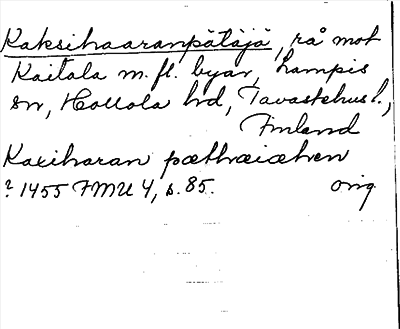 Kaksihaaranpätäjä, rå mot
Kaitala m.fl. byar, Lampis
sn, Hollola hd, Tavastehus l.,
Finland
Kaxiharan pæthæiæhen
? 1455 FMU 4, s. 85. orig